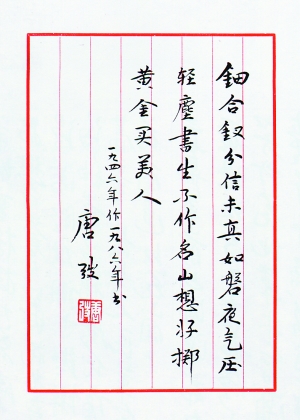 钿合钗分信未真如磐夜气压
轻尘书生不作名山想好掷
黄金买美人
一九四六年作一九八六年书
唐弢
唐弢